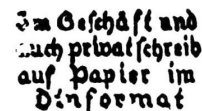 Im Geschäft und
auch privat schreib
auf Papier im
Dinformat